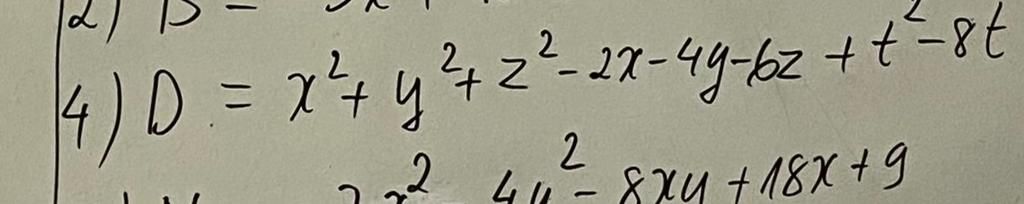 2) D =
4) D = x² + y² + z² - 2x - 4y - 6z + t² - 8t
4y² - 8xy + 18x + 9